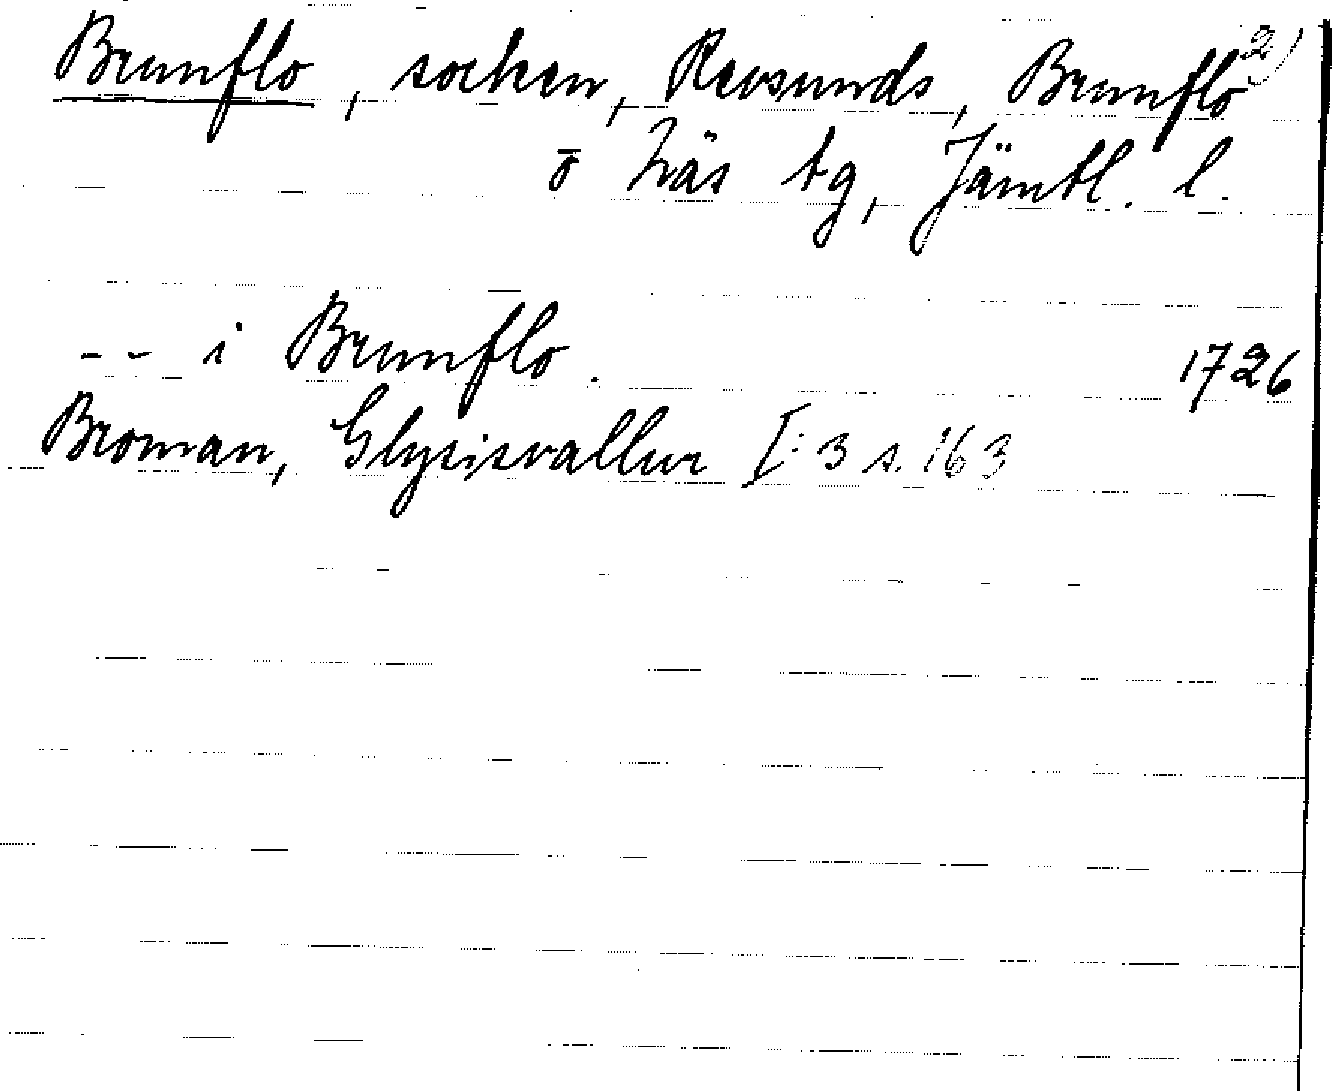 Brunflo, socken, Revsunds, Brunflo 2)
o Näs tg, Jämtl. l.
-- i Brunflo. 1726
Broman, Glysisvallur I:3 s. 163